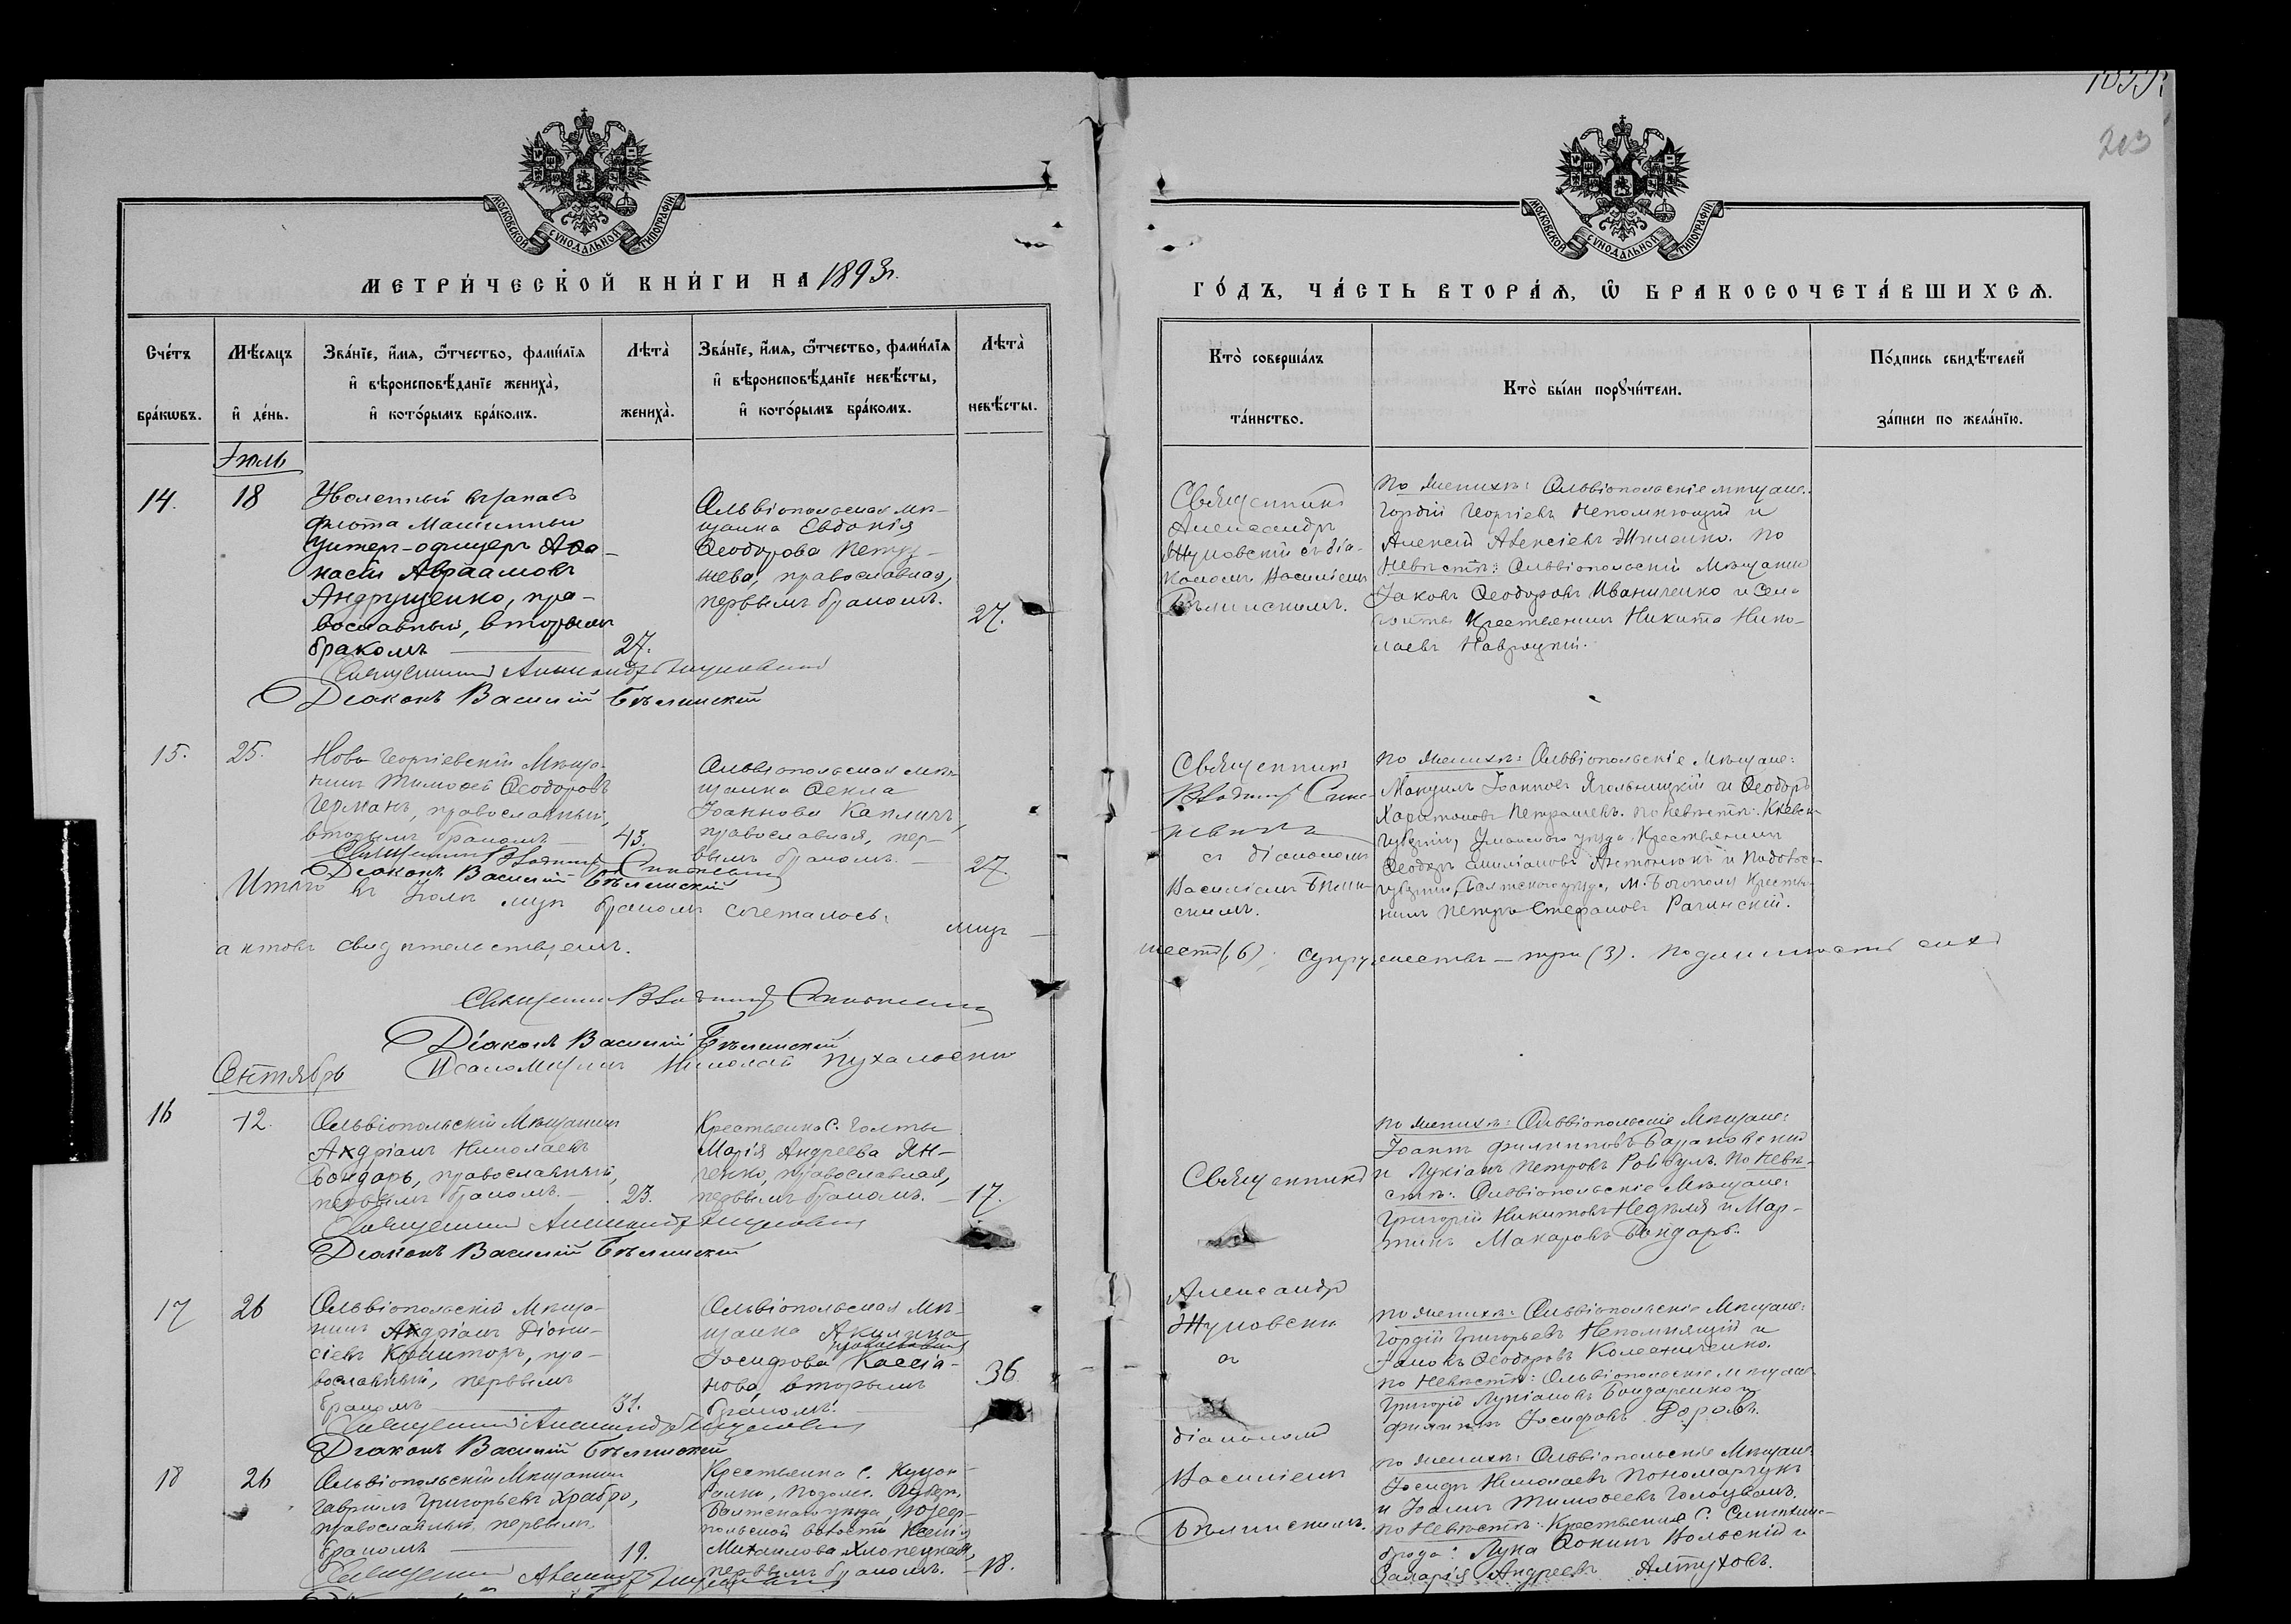 203
МОСКОВСКОЙ СѴНОДАЛЬНОЙ ТИПОГРАФІИ
МЕТРИ́ЧЕСКОЙ КНИ́ГИ НА 1893 г.
Сче́тъ бра́кѡвъ.
Мѣ́сяцъ и҆ де́нь.
Зва́нїе, и҆́мѧ, ѻ҆́тчество, фами́лїѧ
и҆ вѣроисповѣ́данїе жениха̀,
и҆ кото́рымъ бра́комъ.
Лѣта̀ жениха̀.
Зва́нїе, и҆́мѧ, ѻ҆́тчество, фами́лїѧ
и҆ вѣроисповѣ́данїе невѣ́сты,
и҆ кото́рымъ бра́комъ.
Лѣта̀ невѣ́сты.
Іюль
14.
18
Уволенный въ запасъ
флота Машинный
Унтер-офицеръ Аѳа-
насій Авраамовъ
Андрущенко, пра-
вославный, вторымъ
бракомъ
27.
Ольвіопольская мѣ-
щанка Евдокія
Ѳеодорова Петра-
шева, православная,
первымъ бракомъ.
27.
Священникъ Александръ Жуковскій
Діаконъ Василій Бѣлинскій
15.
25.
Ново Георгіевскій Мѣща-
нинъ Тимоѳей Ѳеодоровъ
Германъ, православный,
вторымъ бракомъ
43.
Ольвіопольская мѣ-
щанка Ѳекла
Іоаннова Капличъ,
православная, пер-
вымъ бракомъ.
27.
Священникъ Владиміръ
Діаконъ Василій Бѣлинскій
Итого въ Іюлѣ муж бракомъ сочеталось:
муж
актовъ свидѣтельствуемъ.
Священникъ Владиміръ
Діаконъ Василій Бѣлинскій
Псаломщикъ Николай Пухальскій
Сентябрь
16
12.
Ольвіопольскій Мѣщанинъ
Андріанъ Николаевъ
Бондарь, православный,
первымъ бракомъ.
23.
Крестьянка С. Голты
Марія Андреева Ян-
ченко, православная,
первымъ бракомъ.
17.
Священникъ Александръ Жуковскій
Діаконъ Василій Бѣлинскій
17
26
Ольвіопольскій Мѣща-
нинъ Андріанъ Діони-
сіевъ, пра-
вославный, первымъ
бракомъ
31.
Ольвіопольская Мѣ-
щанка Акилина
Іосифова Кассіа-
нова, вторымъ
бракомъ.
36
Священникъ Александръ Жуковскій
Діаконъ Василій Бѣлинскій
18
26
Ольвіопольскій Мѣщанинъ
Гавріилъ Григорьевъ Храбро,
православный, первымъ
бракомъ
19.
Крестьянка с.
Подольс. губерн.
Балтскаго уѣзда, Юзеф-
польской волости
Михаилова Хлопецкая,
первымъ бракомъ.
18.
Священникъ Александръ Жуковскій
МОСКОВСКОЙ СѴНОДАЛЬНОЙ ТИПОГРАФІИ
ГО́ДЪ, ЧА́СТЬ ВТОРА́Ѧ, Ѽ БРАКОСОЧЕТА́ВШИХСѦ.
Кто̀ соверша́лъ та́инство.
Кто̀ бы́ли порꙋчи́тели.
По́дпись свидѣ́телей за́писи по жела́нїю.
Священникъ
Александръ
Жуковскій съ діа-
кономъ Василіемъ
Бѣлинскимъ.
По женихѣ: Ольвіопольскіе мѣщане.
Гордій Георгіевъ Непомнющій и
Алексій Алексіевъ. По
Невѣстѣ: Ольвіопольскій Мѣщанинъ
Іаковъ Ѳеодоровъ Иваниченко и
Крестьянинъ Никита Нико-
лаевъ Навроцкій.
Священникъ
Владиміръ
съ діакономъ
Василіемъ Бѣлин-
скимъ.
По женихѣ: Ольвіопольскіе Мѣщане:
Мануилъ Іоанновъ Ягольницкій и Ѳеодоръ
Харитоновъ Петрашевъ. По невѣстѣ: Кіевск.
губерніи, Уманскаго уѣзда Крестьянинъ
Ѳеодоръ Емиліановъ Антонюкъ и Подольс.
губерніи, Балтскаго уѣзда, М. Богополя Крестья-
нинъ Петръ Стефановъ Рачинскій.
шесть (6); супружествъ — три (3). Подлинность сихъ
Священникъ
Александръ
Жуковскій
съ
діакономъ
Василіемъ
Бѣлинскимъ.
По женихѣ: Ольвіопольскіе Мѣщане:
Іоаннъ Филипповъ Барановскій
и Лукіанъ Петровъ Ройбулъ. По Невѣ-
стѣ: Ольвіопольскіе Мѣщане:
Григорій Никитовъ Недѣля и Мар-
тинъ Макаровъ Бондарь.
По женихѣ: Ольвіопольскіе Мѣщане:
Гордій Григорьевъ Непомнящій и
Іаковъ Ѳеодоровъ.
По Невѣстѣ: Ольвіопольскіе Мѣщане
Григорій Лукіановъ Бондаренко и
Филиппъ Іосифовъ.
По женихѣ: Ольвіопольскіе Мѣщане
Іосифъ Николаевъ Пономарчукъ
и Іоаннъ Тимоѳеевъ Голоцванъ.
По Невѣстѣ: Крестьянинъ С.
Лука Ѳоминъ Вольскій и
Захарія Андреевъ Алтуховъ.